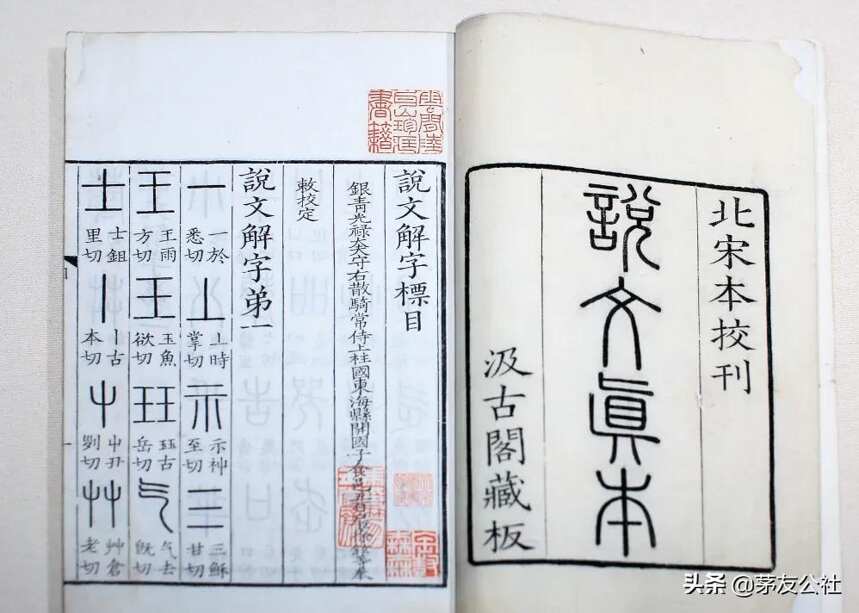 北宋本校刊
說文眞本
汲古閣藏板
說文解字標目
銀青光祿大夫守右散騎常侍上柱國東海縣開國子食邑五百戶臣徐鉉等奉
敕校定
說文解字弟一
一 一於悉切 丄 丄時掌切 示 示神至切 三 三穌甘切
王 王雨方切 玉 玉魚欲切 玨 玨古岳切 气 气去旣切
士 士鉏里切 丨 丨古本切 屮 屮丑列切 艸 艸倉老切
头条 @茅友公社